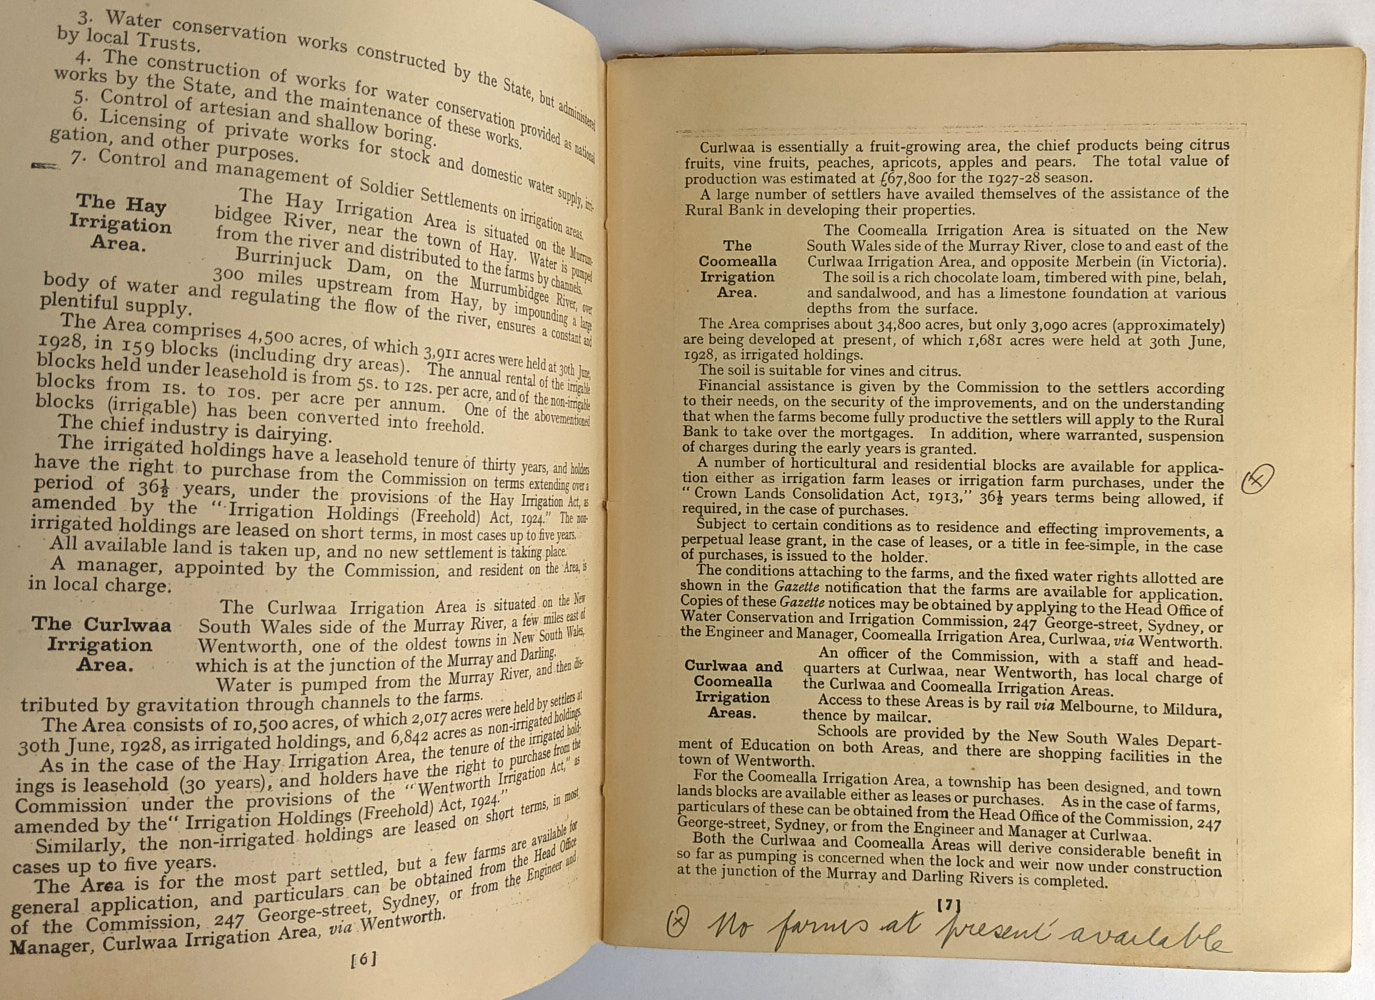 3. Water conservation works constructed by the State, but administered
by local Trusts.
4. The construction of works for water conservation provided as national
works by the State, and the maintenance of these works.
5. Control of artesian and shallow boring.
6. Licensing of private works for stock and domestic water supply, irri-
gation, and other purposes.
7. Control and management of Soldier Settlements on irrigation areas.
The Hay
Irrigation
Area.
The Hay Irrigation Area is situated on the Murrum-
bidgee River, near the town of Hay. Water is pumped
from the river and distributed to the farms by channels.
Burrinjuck Dam, on the Murrumbidgee River, over
300 miles upstream from Hay, by impounding a large
body of water and regulating the flow of the river, ensures a constant and
plentiful supply.
The Area comprises 4,500 acres, of which 3,911 acres were held at 30th June,
1928, in 159 blocks (including dry areas). The annual rental of the irrigable
blocks held under leasehold is from 5s. to 12s. per acre, and of the non-irrigable
blocks from 1s. to 10s. per acre per annum. One of the abovementioned
blocks (irrigable) has been converted into freehold.
The chief industry is dairying.
The irrigated holdings have a leasehold tenure of thirty years, and holders
have the right to purchase from the Commission on terms extending over a
period of 36½ years, under the provisions of the Hay Irrigation Act, as
amended by the "Irrigation Holdings (Freehold) Act, 1924." The non-
irrigated holdings are leased on short terms, in most cases up to five years.
All available land is taken up, and no new settlement is taking place.
A manager, appointed by the Commission, and resident on the Area, is
in local charge.
The Curlwaa
Irrigation
Area.
The Curlwaa Irrigation Area is situated on the New
South Wales side of the Murray River, a few miles east of
Wentworth, one of the oldest towns in New South Wales,
which is at the junction of the Murray and Darling.
Water is pumped from the Murray River, and then dis-
tributed by gravitation through channels to the farms.
The Area consists of 10,500 acres, of which 2,017 acres were held by settlers at
30th June, 1928, as irrigated holdings, and 6,842 acres as non-irrigated holdings.
As in the case of the Hay Irrigation Area, the tenure of the irrigated hold-
ings is leasehold (30 years), and holders have the right to purchase from the
Commission under the provisions of the "Wentworth Irrigation Act," as
amended by the "Irrigation Holdings (Freehold) Act, 1924."
Similarly, the non-irrigated holdings are leased on short terms, in most
cases up to five years.
The Area is for the most part settled, but a few farms are available for
general application, and particulars can be obtained from the Head Office
of the Commission, 247 George-street, Sydney, or from the Engineer and
Manager, Curlwaa Irrigation Area, via Wentworth.
[6]
Curlwaa is essentially a fruit-growing area, the chief products being citrus
fruits, vine fruits, peaches, apricots, apples and pears. The total value of
production was estimated at £67,800 for the 1927-28 season.
A large number of settlers have availed themselves of the assistance of the
Rural Bank in developing their properties.
The
Coomealla
Irrigation
Area.
The Coomealla Irrigation Area is situated on the New
South Wales side of the Murray River, close to and east of the
Curlwaa Irrigation Area, and opposite Merbein (in Victoria).
The soil is a rich chocolate loam, timbered with pine, belah,
and sandalwood, and has a limestone foundation at various
depths from the surface.
The Area comprises about 34,800 acres, but only 3,090 acres (approximately)
are being developed at present, of which 1,681 acres were held at 30th June,
1928, as irrigated holdings.
The soil is suitable for vines and citrus.
Financial assistance is given by the Commission to the settlers according
to their needs, on the security of the improvements, and on the understanding
that when the farms become fully productive the settlers will apply to the Rural
Bank to take over the mortgages. In addition, where warranted, suspension
of charges during the early years is granted.
A number of horticultural and residential blocks are available for applica-
tion either as irrigation farm leases or irrigation farm purchases, under the
"Crown Lands Consolidation Act, 1913," 36½ years terms being allowed, if
required, in the case of purchases.
(x)
Subject to certain conditions as to residence and effecting improvements, a
perpetual lease grant, in the case of leases, or a title in fee-simple, in the case
of purchases, is issued to the holder.
The conditions attaching to the farms, and the fixed water rights allotted are
shown in the Gazette notification that the farms are available for application.
Copies of these Gazette notices may be obtained by applying to the Head Office of
Water Conservation and Irrigation Commission, 247 George-street, Sydney, or
the Engineer and Manager, Coomealla Irrigation Area, Curlwaa, via Wentworth.
Curlwaa and
Coomealla
Irrigation
Areas.
An officer of the Commission, with a staff and head-
quarters at Curlwaa, near Wentworth, has local charge of
the Curlwaa and Coomealla Irrigation Areas.
Access to these Areas is by rail via Melbourne, to Mildura,
thence by mailcar.
Schools are provided by the New South Wales Depart-
ment of Education on both Areas, and there are shopping facilities in the
town of Wentworth.
For the Coomealla Irrigation Area, a township has been designed, and town
lands blocks are available either as leases or purchases. As in the case of farms,
particulars of these can be obtained from the Head Office of the Commission, 247
George-street, Sydney, or from the Engineer and Manager at Curlwaa.
Both the Curlwaa and Coomealla Areas will derive considerable benefit in
so far as pumping is concerned when the lock and weir now under construction
at the junction of the Murray and Darling Rivers is completed.
[7]
(x) No farms at present available